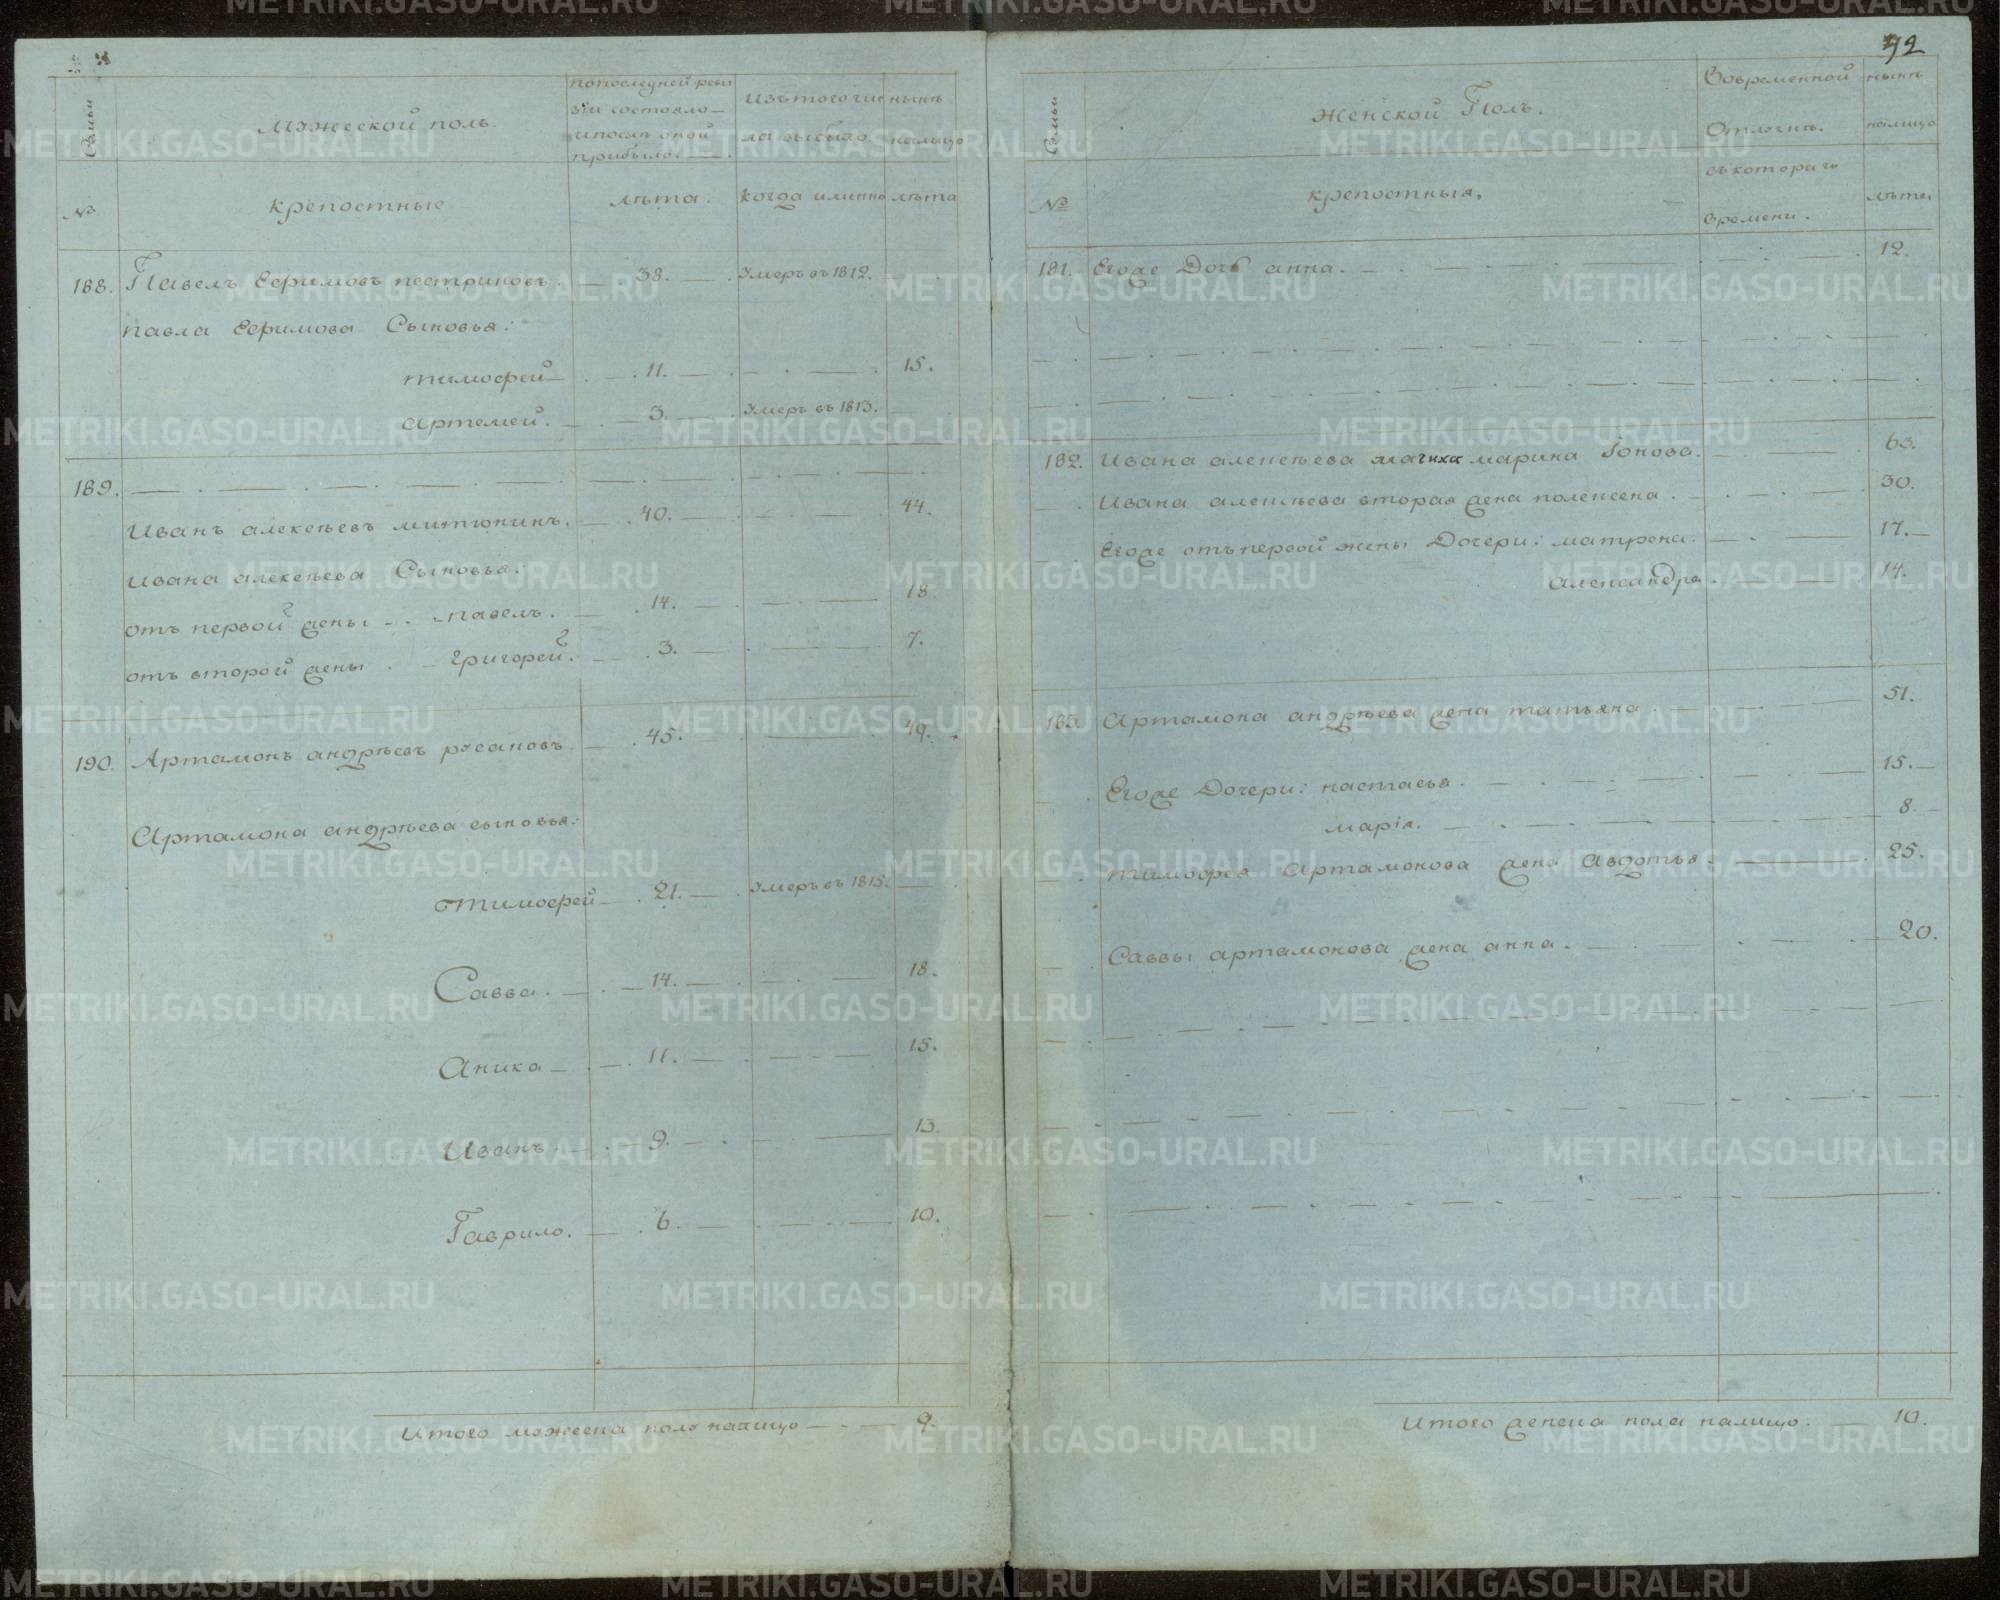 Семьи
Мужеской полъ.
по последней реви
зіи состояло
и после оной
прибыло.
Изъ того чис
ла выбыло
нынѣ
налицо
№
крепостные
лѣта.
когда имянно
лѣта
188. Павелъ Ефимовъ пестриковъ. 38. Умеръ въ 1812.
павла Ефимова Сыновья:
тимофей 11. 15.
артемей. 3. Умеръ въ 1813.
189.
Иванъ алексѣевъ митюнинъ. 40. 44.
Ивана алексѣева Сыновья:
отъ первой жены павелъ. 14. 18
отъ второй жены григорей. 3. 7.
190. Артамонъ андрѣевъ русановъ. 45. 49.
Артамона андрѣева сыновья:
тимофей 21. Умеръ въ 1815.
Савва. 14. 18.
Аника 11. 15.
Иванъ 9. 13.
Гаврило. 6. 10.
Итого мужеска полу налицо 9.
42
Семьи
Женской Полъ.
Вовременной
Отлучке.
нынѣ
налицо
№
крепостныя.
съ котораго
времени.
лѣта
181. Егоже Дочь анна. 12.
182. Ивана алексѣева мачиха марина Іонова. 63.
Ивана алексѣева вторая жена поленсена. 30.
Егоже отъ первой жены Дочери: матрена 17.
александра. 14.
183. Артамона андрѣева жена татьяна. 51.
Егоже Дочери: настасья. 15.
марія. 8.
тимофея Артамонова жена Авдотья. 25.
Саввы артамонова жена анна. 20.
Итого женска пола налицо. 10.
METRIKI.GASO-URAL.RU